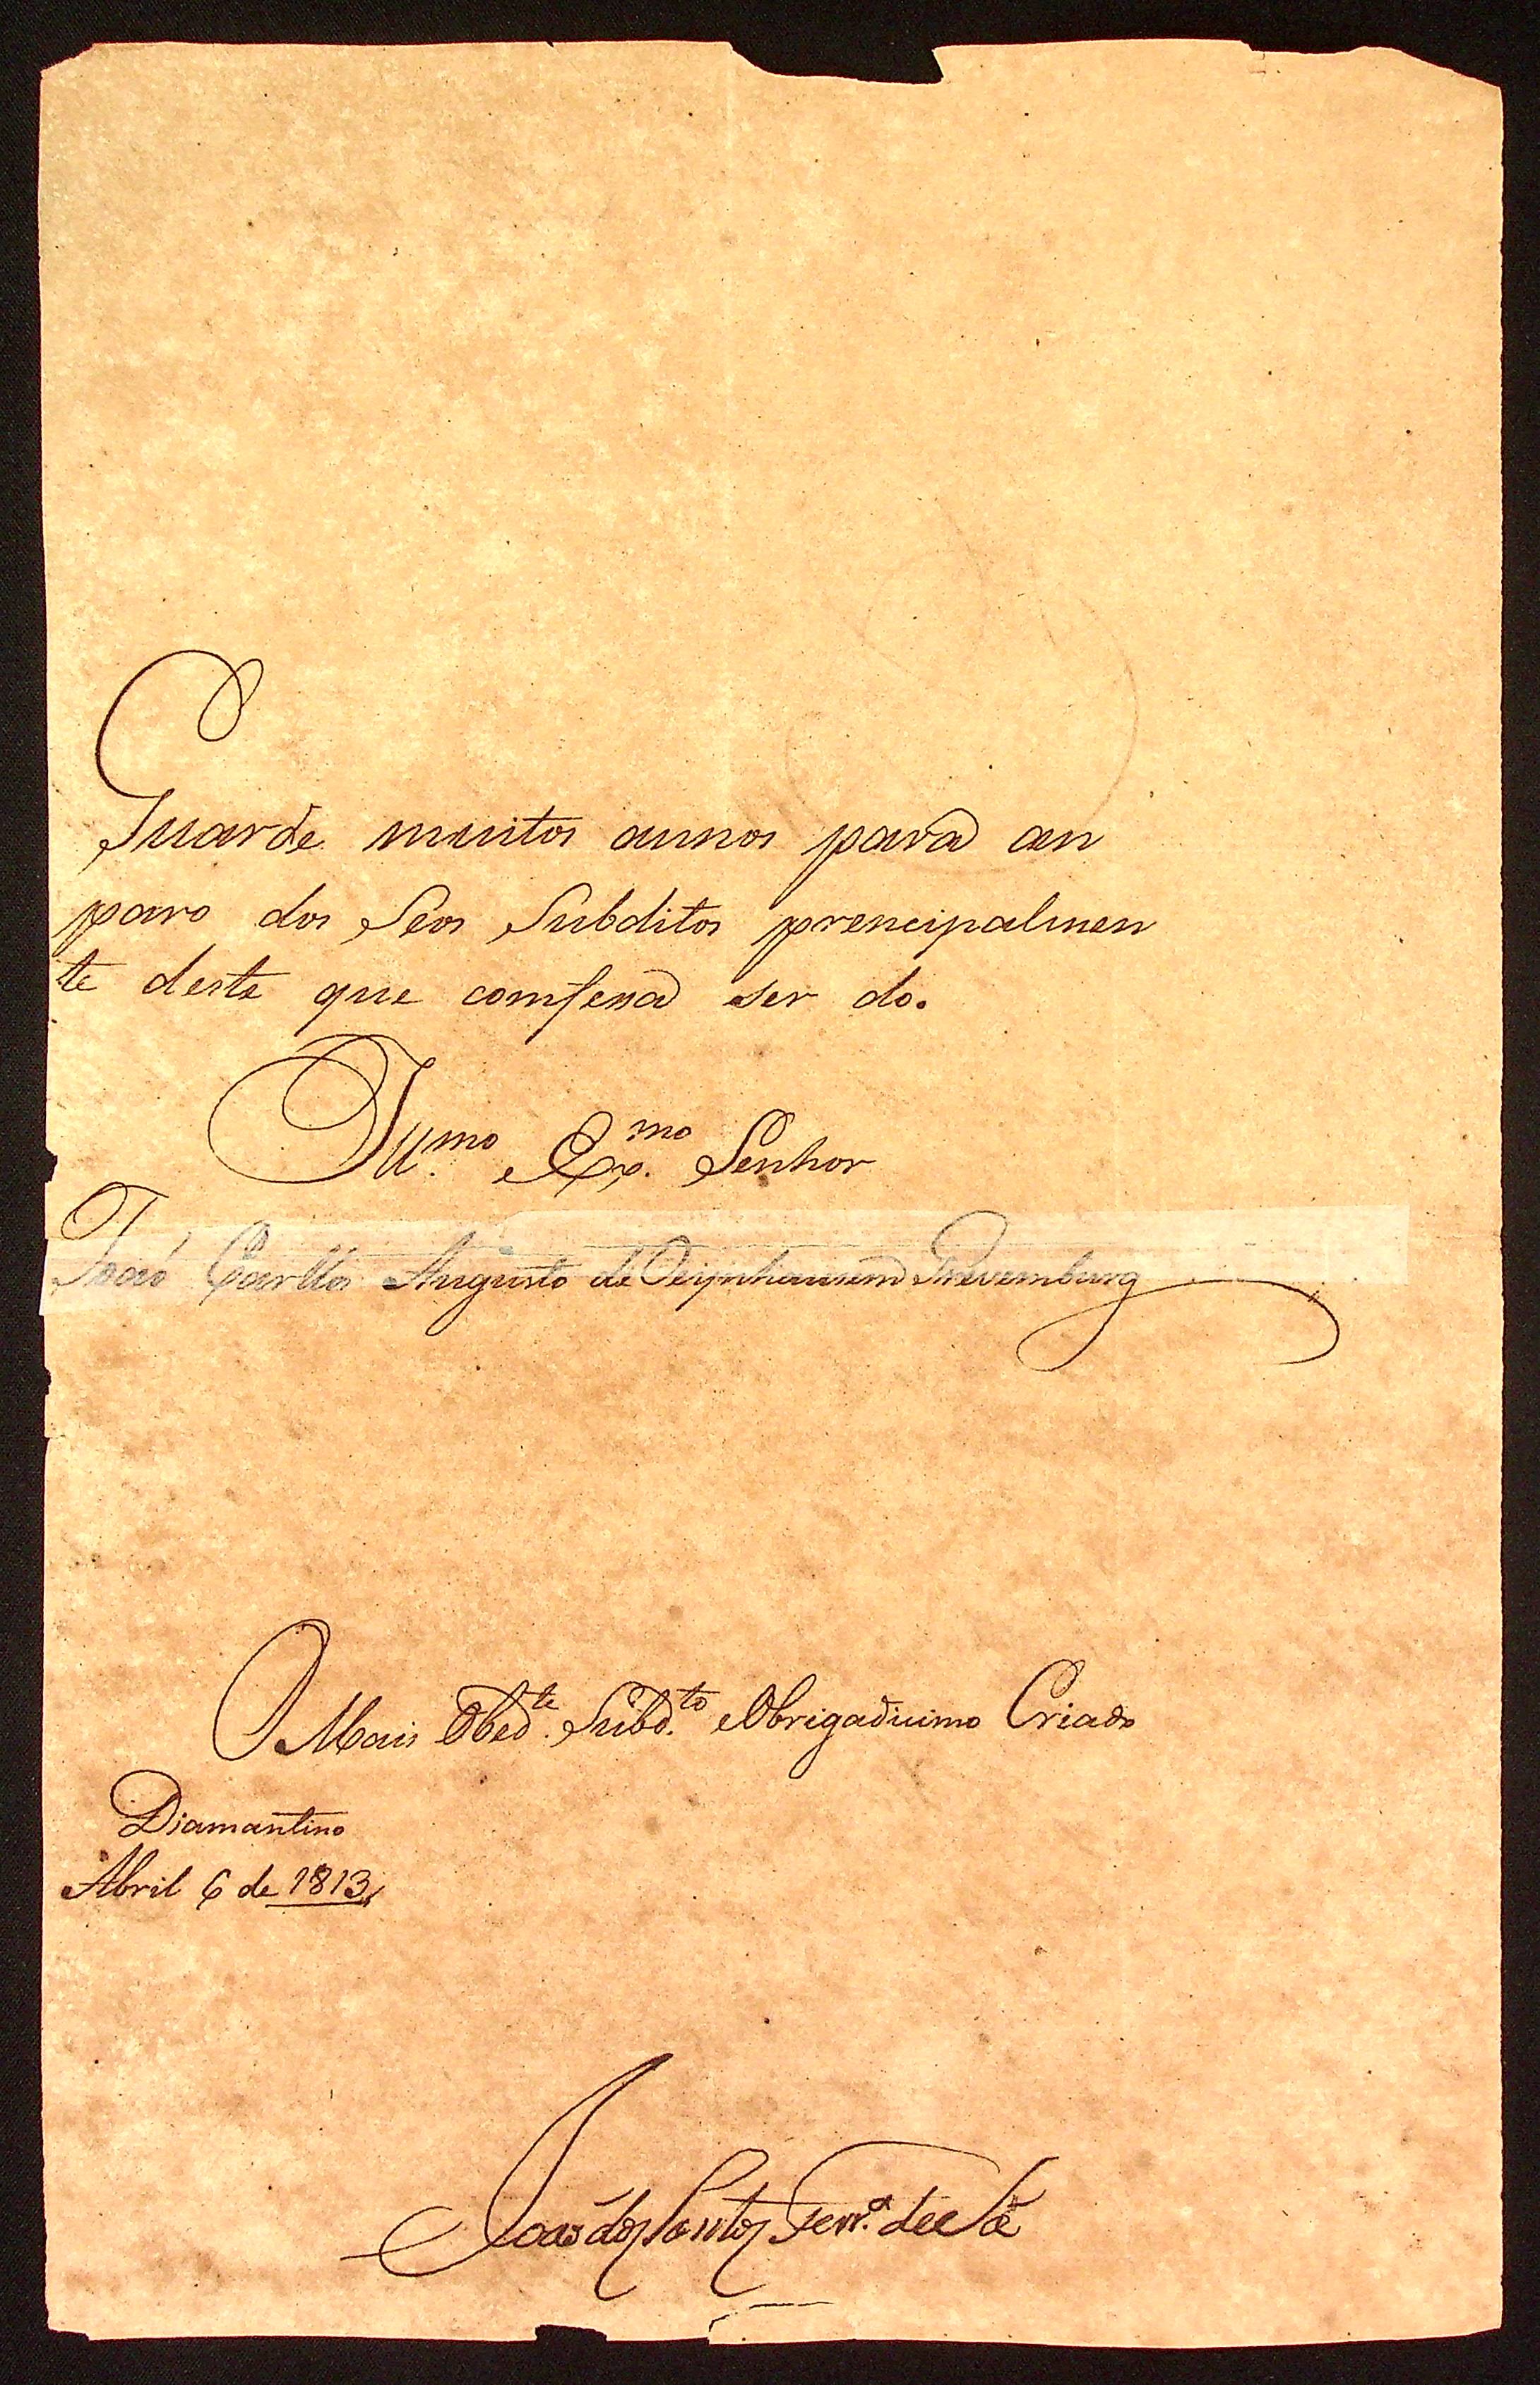 Guarde muitos annos para an
paro dos Seos Subditos prencipalmen
te deste que comfessa ser do.
Ill.mo e Ex.mo Senhor
Joaõ Carllos Augusto de Oeijnhausem Grevemburg
O Mais Obed.te Subd.to e Obrigadissimo Criado
Diamantino
Abril 6 de 1813,
Joaõ dos Santos Ferr.a